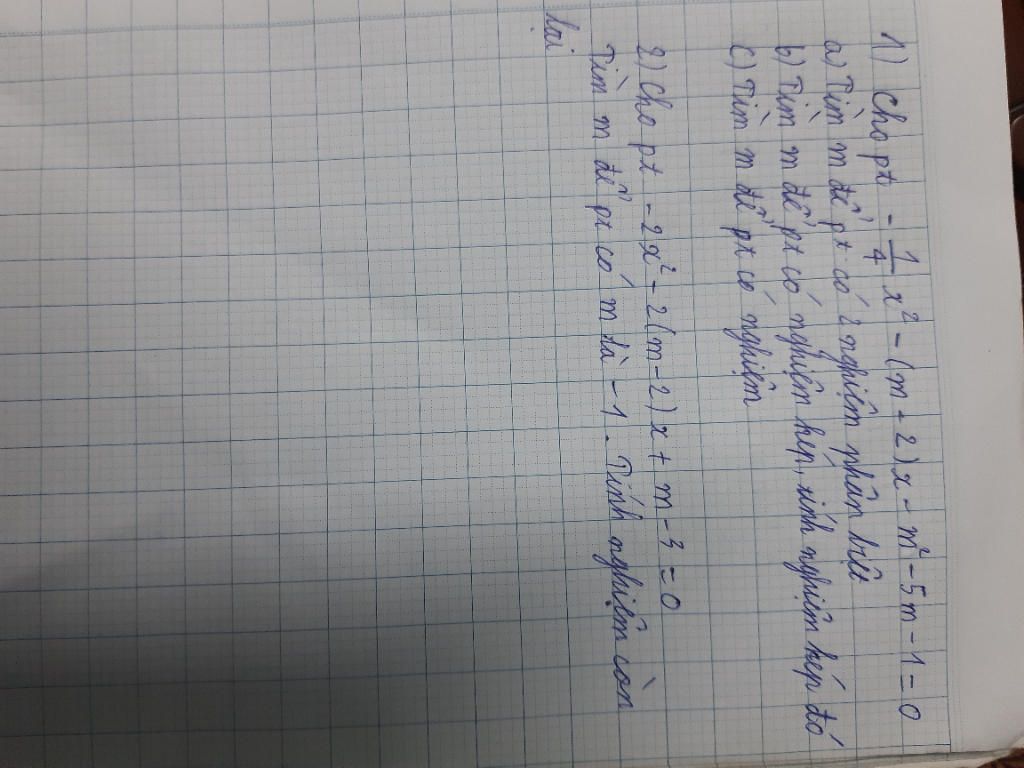 1) Cho pt -1/4 x² - (m - 2)x - m² - 5m - 1 = 0
a) Tìm m để pt có 2 nghiệm phân biệt
b) Tìm m để pt có nghiệm kép, tính nghiệm kép đó
c) Tìm m để pt có nghiệm
2) Cho pt - 2x² - 2(m - 2)x + m - 3 = 0
Tìm m để pt có m là -1. Tính nghiệm còn
lại